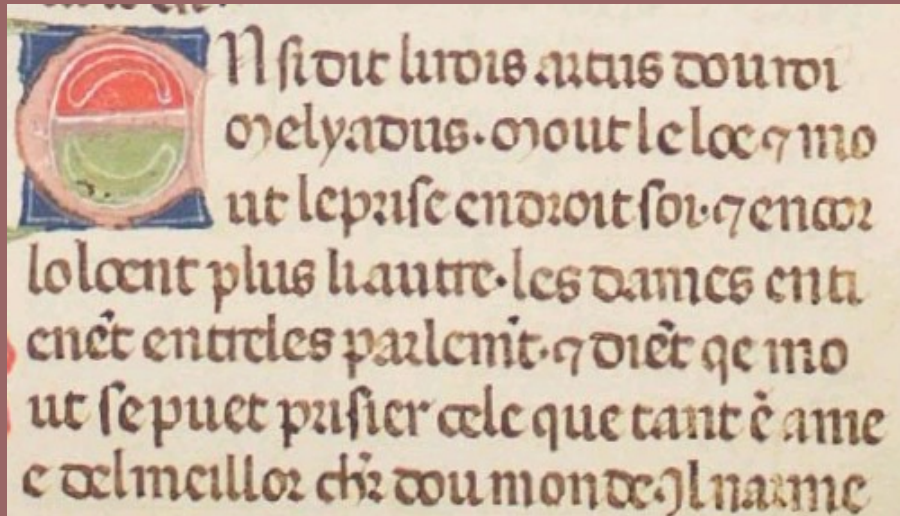 ENsi dit li rois artus dou roi
Melyadus. Mout le loe ⁊ mo
ut le prise endroit soi. ⁊ encor
lo loent plus li autre. les dames enti
enēt entreles parlem̄t. ⁊ diēt qe mo
ut se puet prisier cele que tant ē ame
e del meillor chr̄ dou monde. Ilname